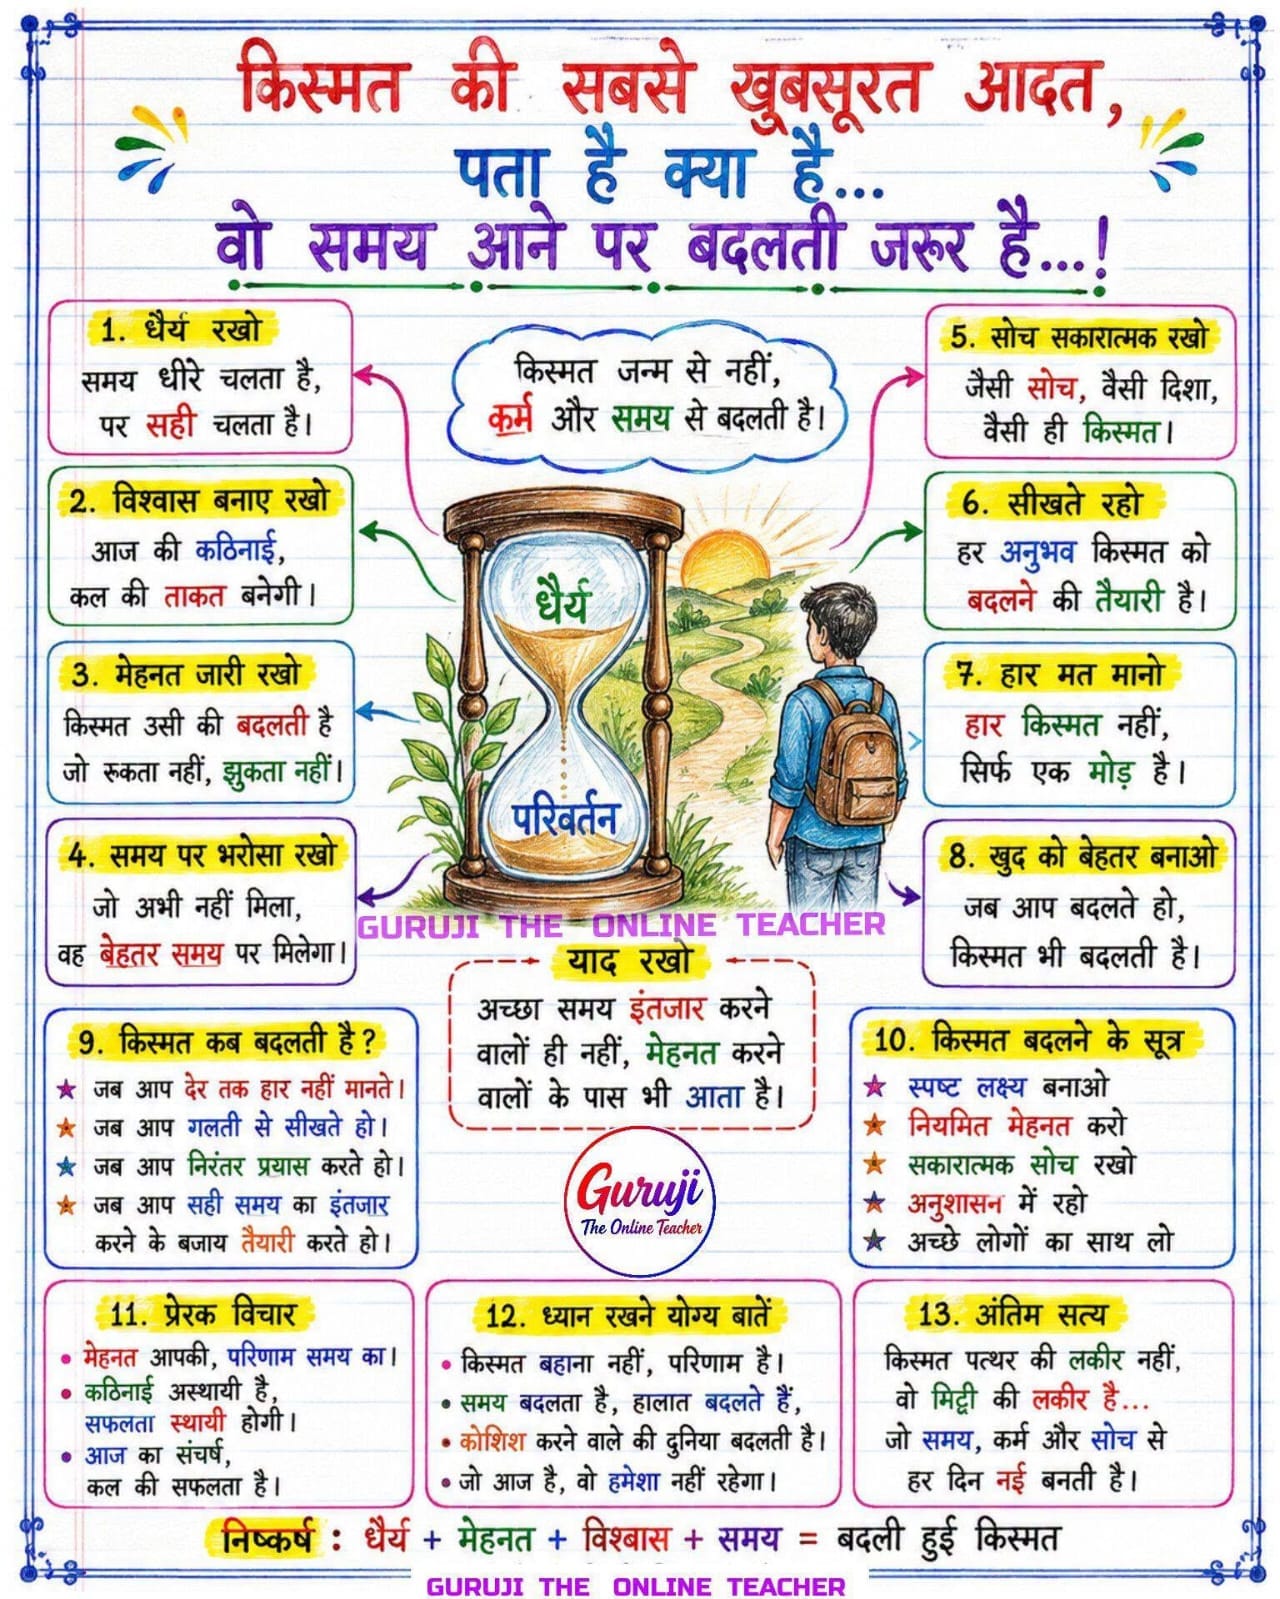 किस्मत की सबसे खुबसूरत आदत,
पता है क्या है...
वो समय आने पर बदलती जरूर है...!
किस्मत जन्म से नहीं,
कर्म और समय से बदलती है।
1. धैर्य रखो
समय धीरे चलता है,
पर सही चलता है।
2. विश्वास बनाए रखो
आज की कठिनाई,
कल की ताकत बनेगी।
3. मेहनत जारी रखो
किस्मत उसी की बदलती है
जो रूकता नहीं, झुकता नहीं।
4. समय पर भरोसा रखो
जो अभी नहीं मिला,
वह बेहतर समय पर मिलेगा।
धैर्य
परिवर्तन
5. सोच सकारात्मक रखो
जैसी सोच, वैसी दिशा,
वैसी ही किस्मत।
6. सीखते रहो
हर अनुभव किस्मत को
बदलने की तैयारी है।
7. हार मत मानो
हार किस्मत नहीं,
सिर्फ एक मोड़ है।
8. खुद को बेहतर बनाओ
जब आप बदलते हो,
किस्मत भी बदलती है।
GURUJI THE ONLINE TEACHER
याद रखो
अच्छा समय इंतजार करने
वालों ही नहीं, मेहनत करने
वालों के पास भी आता है।
Guruji
The Online Teacher
9. किस्मत कब बदलती है?
जब आप देर तक हार नहीं मानते।
जब आप गलती से सीखते हो।
जब आप निरंतर प्रयास करते हो।
जब आप सही समय का इंतजार
करने के बजाय तैयारी करते हो।
10. किस्मत बदलने के सूत्र
स्पष्ट लक्ष्य बनाओ
नियमित मेहनत करो
सकारात्मक सोच रखो
अनुशासन में रहो
अच्छे लोगों का साथ लो
11. प्रेरक विचार
• मेहनत आपकी, परिणाम समय का।
• कठिनाई अस्थायी है,
सफलता स्थायी होगी।
• आज का संचर्ष,
कल की सफलता है।
12. ध्यान रखने योग्य बातें
• किस्मत बहाना नहीं, परिणाम है।
• समय बदलता है, हालात बदलते हैं,
• कोशिश करने वाले की दुनिया बदलती है।
• जो आज है, वो हमेशा नहीं रहेगा।
13. अंतिम सत्य
किस्मत पत्थर की लकीर नहीं,
वो मिट्टी की लकीर है...
जो समय, कर्म और सोच से
हर दिन नई बनती है।
निष्कर्ष : धैर्य + मेहनत + विश्बास + समय = बदली हुई किस्मत
GURUJI THE ONLINE TEACHER